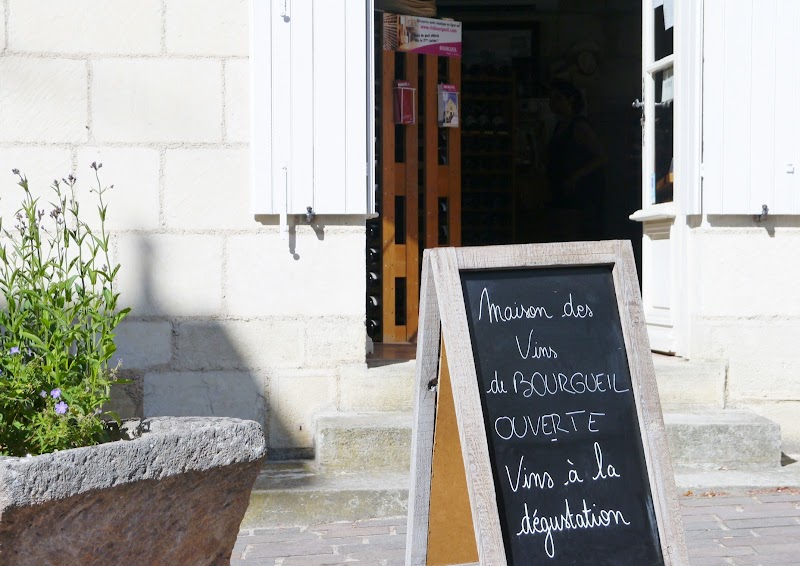 BOURGUEIL
Maison des
Vins
de BOURGUEIL
OUVERTE
Vins à la
dégustation